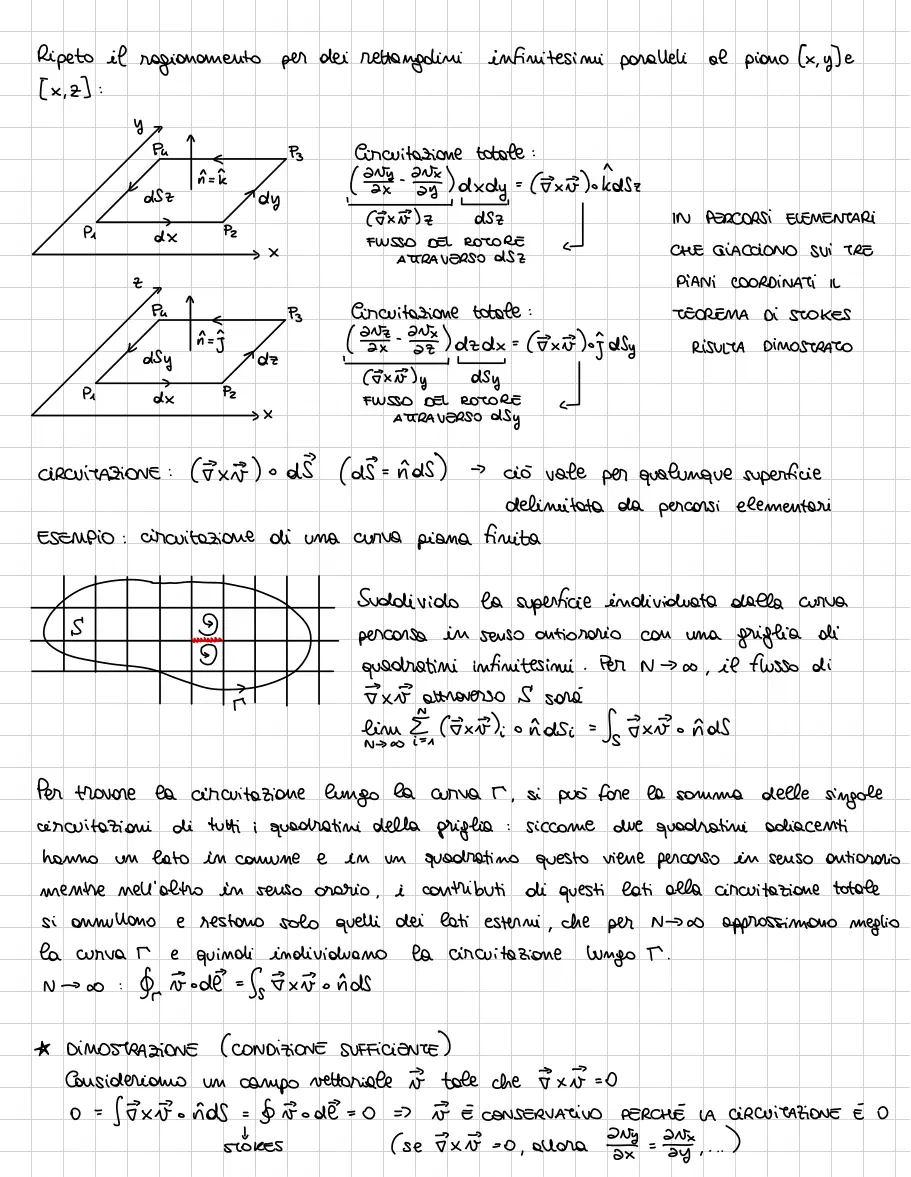 Ripeto il ragionamento per dei rettangolini infinitesimi paralleli al piano [x,y] e
[x,z] :
y
P₄
P₃
n̂=k̂
dSz
dy
P₁
dx
P₂
x
Circuitazione totale :
(∂vy/∂x - ∂vx/∂y) dxdy = (∇⃗×v⃗)∘k̂dSz
(∇⃗×v⃗)z dSz
FLUSSO DEL ROTORE
ATTRAVERSO dSz
IN PERCORSI ELEMENTARI
CHE GIACCIONO SUI TRE
PIANI COORDINATI IL
TEOREMA DI STOKES
RISULTA DIMOSTRATO
z
P₄
P₃
n̂=ĵ
dSy
dz
P₁
dx
P₂
x
Circuitazione totale :
(∂vz/∂x - ∂vx/∂z) dzdx = (∇⃗×v⃗)∘ĵ dSy
(∇⃗×v⃗)y dSy
FLUSSO DEL ROTORE
ATTRAVERSO dSy
CIRCUITAZIONE : (∇⃗×v⃗) ∘ dS⃗ (dS⃗ = n̂dS) → ciò vale per qualunque superficie
delimitata da percorsi elementari
ESEMPIO : circuitazione di una curva piana finita
S
Γ
Suddivido la superficie individuata dalla curva
percorsa in senso antiorario con una griglia di
quadratini infinitesimi. Per N→∞, il flusso di
∇⃗×v⃗ attraverso S sarà
lim N→∞ Σ i=1 N (∇⃗×v⃗)i ∘ n̂dSi = ∫S ∇⃗×v⃗ ∘ n̂dS
Per trovare la circuitazione lungo la curva Γ, si può fare la somma delle singole
circuitazioni di tutti i quadratini della griglia : siccome due quadratini adiacenti
hanno un lato in comune e in un quadratino questo viene percorso in senso antiorario
mentre nell'altro in senso orario, i contributi di questi lati alla circuitazione totale
si annullano e restano solo quelli dei lati esterni, che per N→∞ approssimano meglio
la curva Γ e quindi individuano la circuitazione lungo Γ.
N→∞ : ∮Γ v⃗∘dℓ⃗ = ∫S ∇⃗×v⃗ ∘ n̂dS
★ DIMOSTRAZIONE (CONDIZIONE SUFFICIENTE)
Consideriamo un campo vettoriale v⃗ tale che ∇⃗×v⃗ =0
0 = ∫∇⃗×v⃗∘ n̂dS = ∮ v⃗∘dℓ⃗ = 0 => v⃗ È CONSERVATIVO PERCHÉ LA CIRCUITAZIONE È 0
↓
STOKES (se ∇⃗×v⃗ =0, allora ∂vy/∂x = ∂vx/∂y ,...)